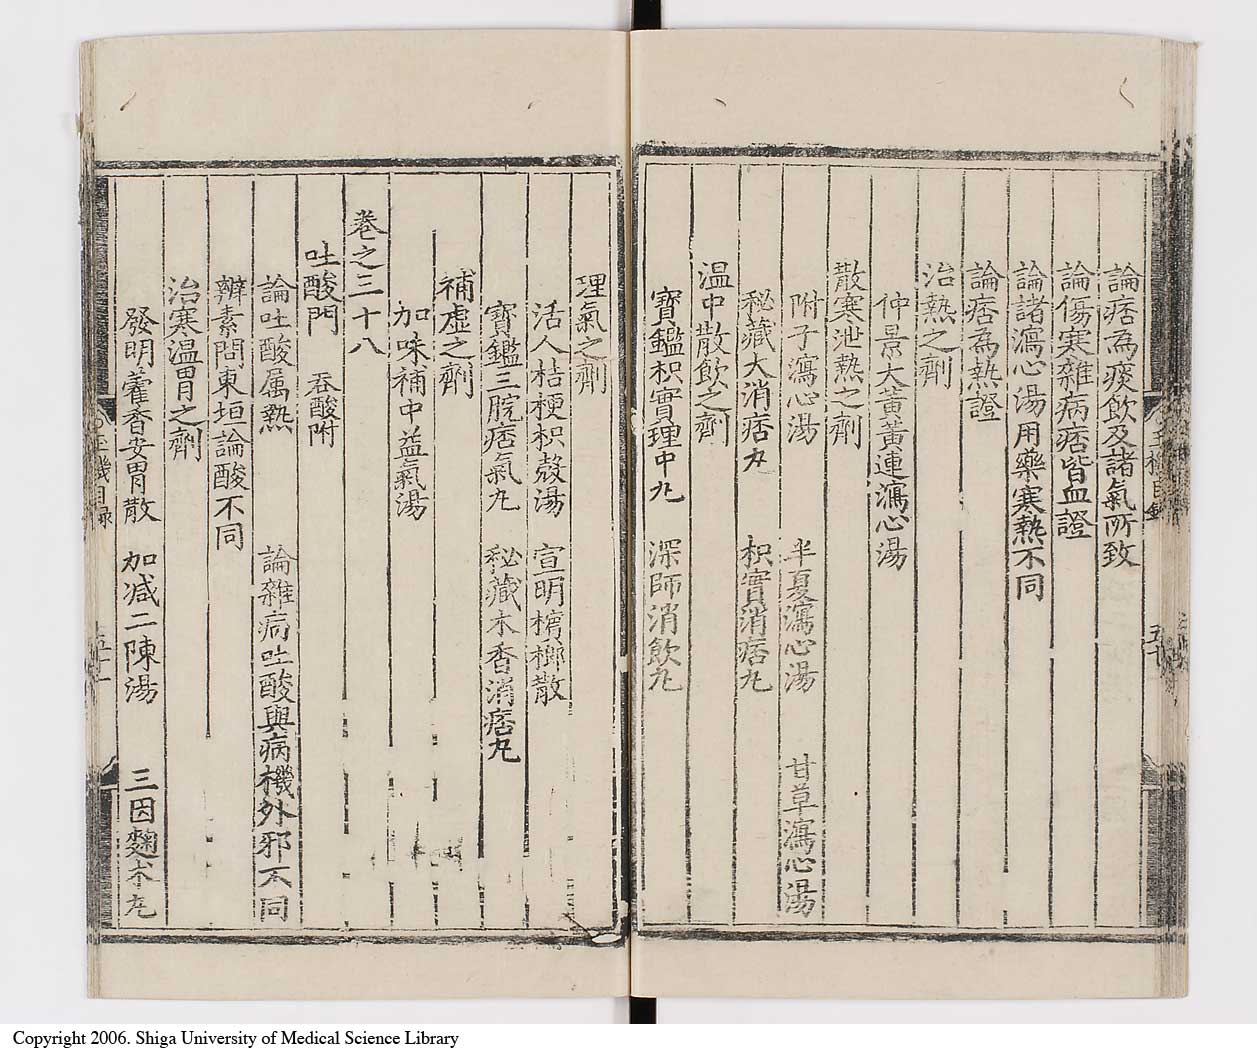 論痞為痰飲及諸氣所致
論傷寒雜病痞皆血證
論諸瀉心湯用藥寒熱不同
論痞為熱證
治熱之劑
仲景大黃黃連瀉心湯
散寒泄熱之劑
附子瀉心湯 半夏瀉心湯 甘草瀉心湯
秘藏大消痞丸 枳實消痞丸
温中散飲之劑
寶鑑枳實理中丸 深師消飲丸
理氣之劑
活人桔梗枳殼湯 宣明檳榔散
寶鑑三脘痞氣丸 秘藏木香消痞丸
補虛之劑
加味補中益氣湯
卷之三十八
吐酸門 吞酸附
論吐酸属熱 論雜病吐酸與病機外邪不同
辯素問東垣論酸不同
治寒温胃之劑
發明藿香安胃散 加减二陳湯 三因麯朮丸
Copyright 2006. Shiga University of Medical Science Library